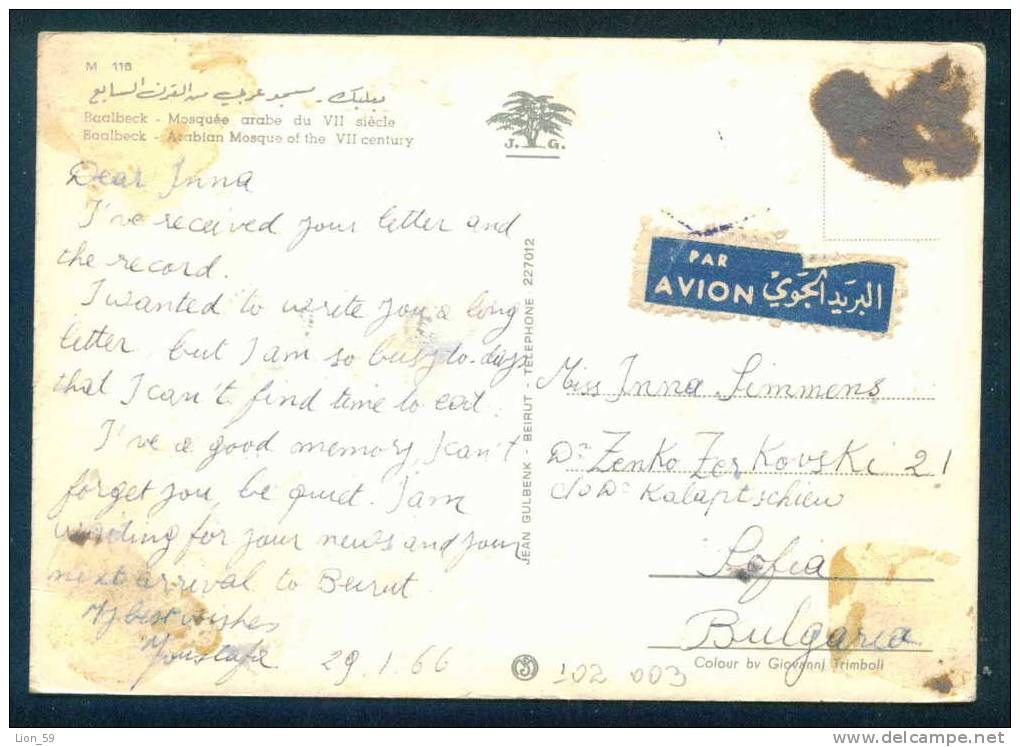 M 118
بعلبك - مسجد عربي من القرن السابع
Baalbeck - Mosquée arabe du VII siècle
Baalbeck - Arabian Mosque of the VII century
J. G.
Dear Inna
I've received your letter and
the record.
I wanted to write you a long
letter, but I am so busy to-day
that I can't find time to eat.
I've a good memory, I can't
forget you, be quiet. I am
waiting for your news and your
next arrival to Beirut
My best wishes
Moustafa 29.1.66
JEAN GULBENK - BEIRUT - TELEPHONE 227012
PAR
AVION البريد الجوي
Miss Inna Simmens
Dr Zenko Zerkovski 21
c/o Dr Kalaptschiev
Sofia
Bulgaria
Colour by Giovanni Trimboli
102 003
Lion_59
www.delcampe.net